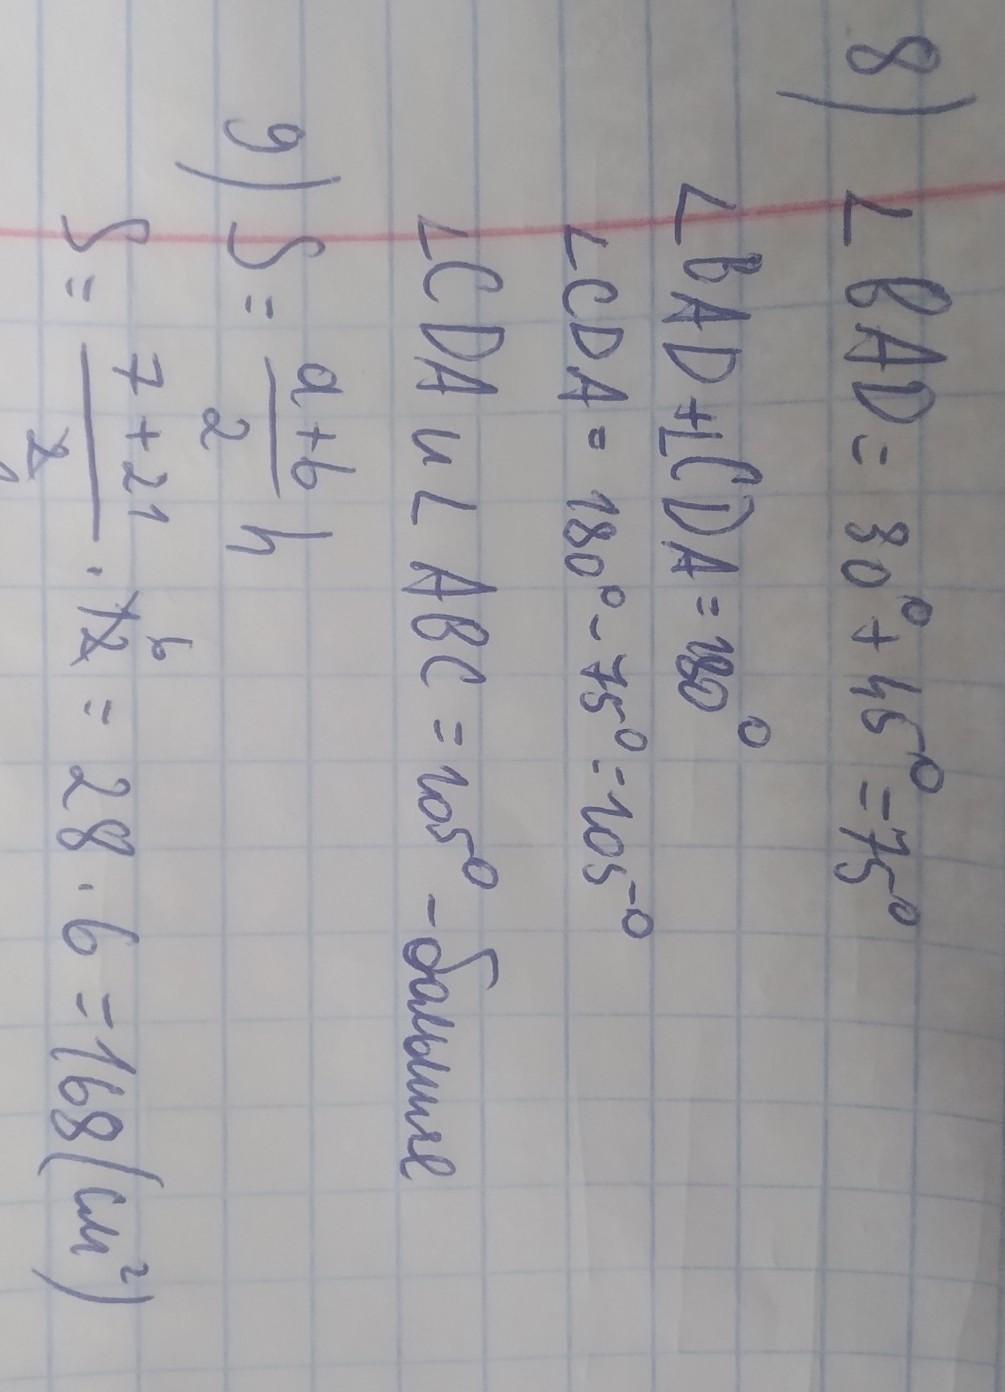 8) ∠ BAD = 30° + 45° = 75°
∠ BAD + ∠CDA = 180°
∠CDA = 180° - 75° = 105°
∠CDA и ∠ ABC = 105° - большие
9) S = a+b/2 h
S = 7+21/2 · 12 6 = 28 · 6 = 168 (см²)
1